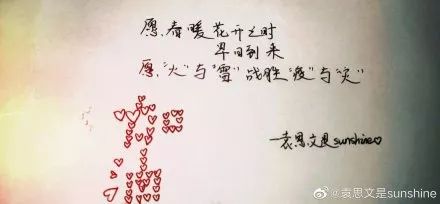 愿，春暖花开之时
早日到来
愿，"火"与"雪"战胜"疫"与"灾"
—袁思文是sunshine♡
@袁思文是sunshine